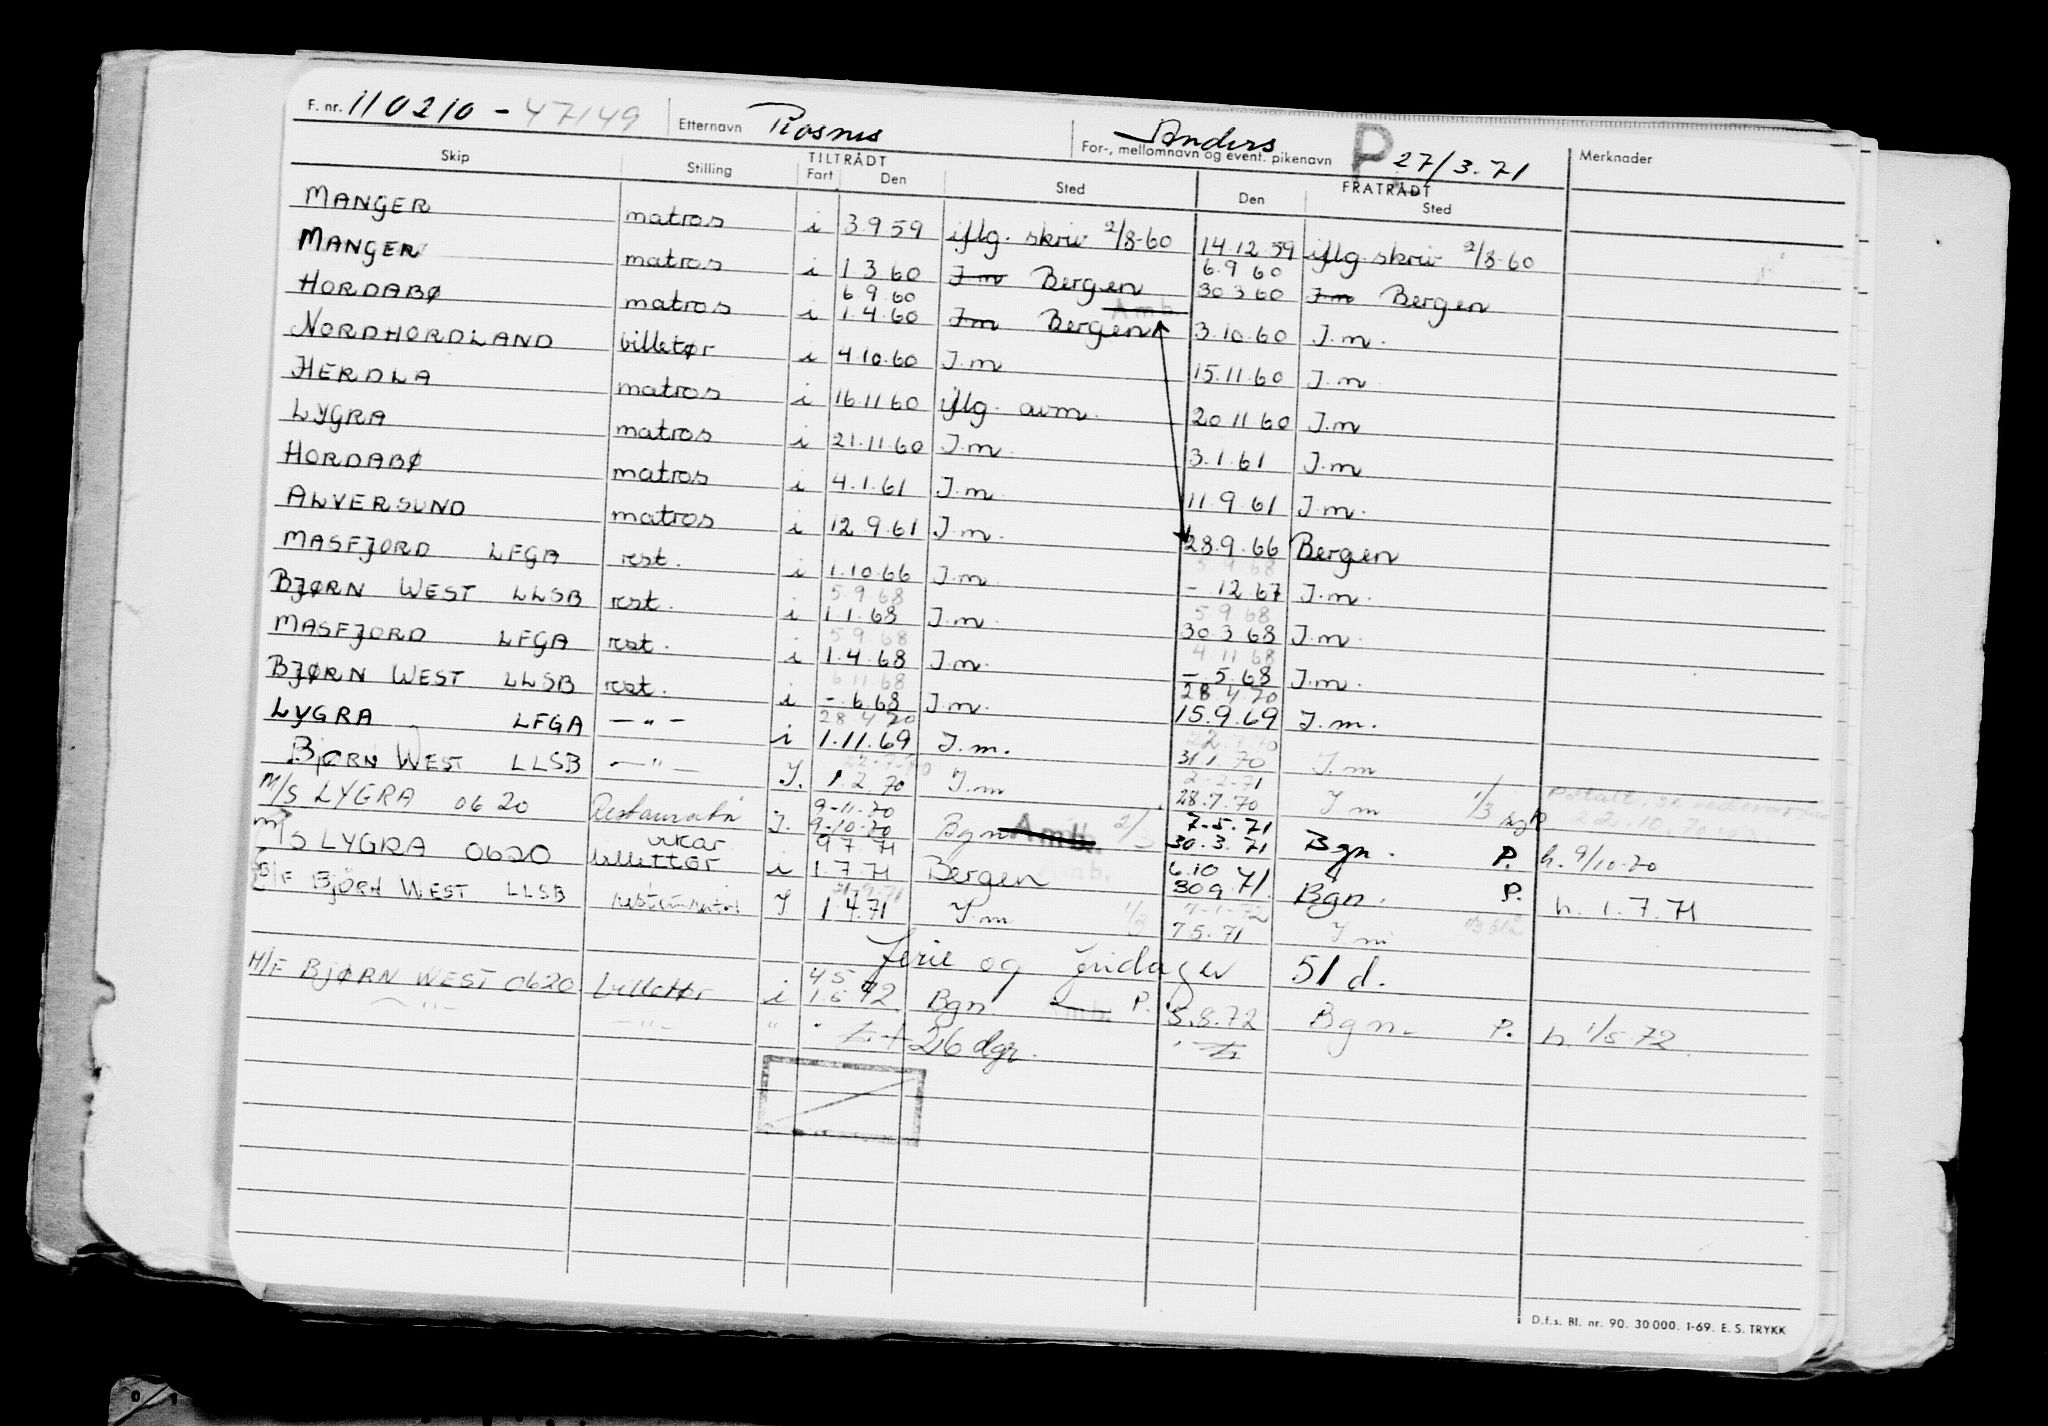 F. nr. 110210 - 47149 Etternavn Rosnes Anders For-, mellomnavn og event. pikenavn P 27/3.71 Merknader
Skip Stilling TILTRÅDT Fart Den Sted FRATRÅDT Den Sted
MANGER matros i 3.9.59 iflg. skriv 2/8-60 14.12.59 iflg. skriv 2/8-60
6.9.60
MANGER matros i 1.3.60 I.m Bergen 30.3.60 I.m Bergen
6.9.60 Amb.
HORDABØ matros i 1.4.60 I.m Bergen 3.10.60 I.m.
NORDHORDLAND billetør i 4.10.60 I.m 15.11.60 I.m
HERDLA matros i 16.11.60 iflg. avm. 20.11.60 I.m
LYGRA matros i 21.11.60 I.m. 3.1.61 I.m
HORDABØ matros i 4.1.61 I.m. 11.9.61 I.m.
ALVERSUND matros i 12.9.61 I.m. 28.9.66 Bergen
5 9 68
MASFJORD LFGA rest. i 1.10.66 I.m. - 12.67 I.m.
5.9.68 5 9 68
BJØRN WEST LLSB rest. i 1.1.68 I.m. 30.3.68 I.m.
5 9 68 4 11 68
MASFJORD LFGA rest. i 1.4.68 I.m. - 5.68 I.m.
6.11.68 28.4.70
BJØRN WEST LLSB rest. i - 6.68 I.m. 15.9.69 I.m.
28 4 70 22.7.70
LYGRA LFGA — " — i 1.11.69 I.m. 31.1.70 I.m
2-2-71
BJØRN WEST LLSB — " — I. 1.2.70 I.m 28.7.70 I m 1/3
9-11.70 7-5.71 22.10.70
M/S LYGRA 0620 I. 9-10-70 Bgn Amb. 2/3 30.3.71 Bgn. P. h. 9/10-70
9 7 71 6.10 71
M/S LYGRA 0620 billettør i 1.7.71 Bergen Amb. 30 9 71. Bgn. P. h. 1.7.71
M/F BJØRN WEST LLSB I 1.4.71 I.m 1/3 7.5.71 I m
Ferie og fridager 51 d.
4 5
M/F BJØRN WEST 0620 billettør i 1.5 72 Bgn. Amb. P. 5.8.72 Bgn. P. h. 1/5.72.
— " — — " — " 26 dgr.
D.f.s. Bl. nr. 90. 30 000. 1-69. E. S. TRYKK